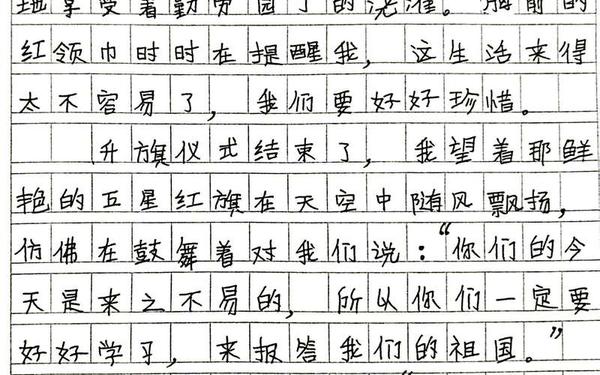 地享受着勤劳园丁的浇灌。胸前的
红领巾时时在提醒我，这生活来得
太不容易了，我们要好好珍惜。
升旗仪式结束了，我望着那鲜
艳的五星红旗在天空中随风飘扬，
仿佛在鼓舞着对我们说：“你们的今
天是来之不易的，所以你们一定要
好好学习，来报答我们的祖国。”